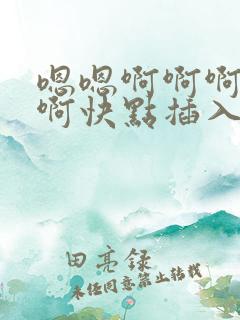 嗯嗯啊啊啊
啊快點插入
田亮録
未经同意禁止转载